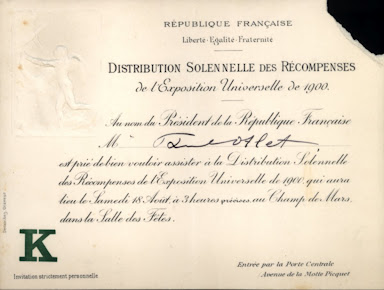 RÉPUBLIQUE FRANÇAISE
Liberté-Egalité-Fraternité
DISTRIBUTION SOLENNELLE DES RÉCOMPENSES
de l'Exposition Universelle de 1900.
Au nom du Président de la République Française
M
est prié de bien vouloir assister à la Distribution Solennelle
des Récompenses de l'Exposition Universelle de 1900, qui aura
lieu le Samedi 18 Août à 3 heures précises au Champ de Mars,
dans la Salle des Fêtes.
K
Invitation strictement personnelle
Entrée par la Porte Centrale
Avenue de la Motte Picquet